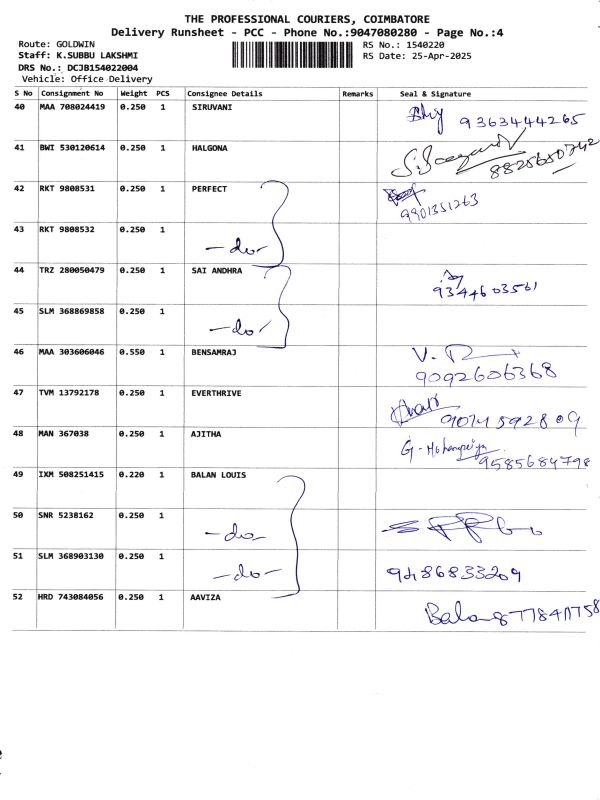 THE PROFESSIONAL COURIERS, COIMBATORE
Delivery Runsheet - PCC - Phone No.:9047080280 - Page No.:4
Route: GOLDWIN RS No.: 1540220
Staff: K.SUBBU LAKSHMI RS Date: 25-Apr-2025
DRS No.: DCJB154022004
Vehicle: Office Delivery
S No Consignment No Weight PCS Consignee Details Remarks Seal & Signature
40 MAA 708024419 0.250 1 SIRUVANI 9363444265
41 BWI 530120614 0.250 1 HALGONA 8825650742
42 RKT 9808531 0.250 1 PERFECT 9901351263
43 RKT 9808532 0.250 1
-do-
44 TRZ 280050479 0.250 1 SAI ANDHRA 9344603561
45 SLM 368869858 0.250 1
-do-
46 MAA 303606046 0.550 1 BENSAMRAJ
9092606368
47 TVM 13792178 0.250 1 EVERTHRIVE
9074592809
48 MAN 367038 0.250 1 AJITHA
9585684798
49 IXM 508251415 0.220 1 BALAN LOUIS
50 SNR 5238162 0.250 1
-do-
51 SLM 368903130 0.250 1
-do- 9486833209
52 HRD 743084056 0.250 1 AAVIZA
Balan